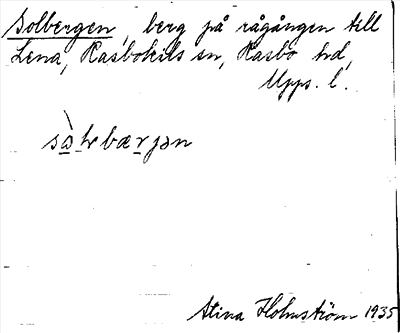 Solbergen, berg på rågången till
Lena, Rasbokils sn, Rasbo hd,
Upps. l.
Stina Holmström 1935